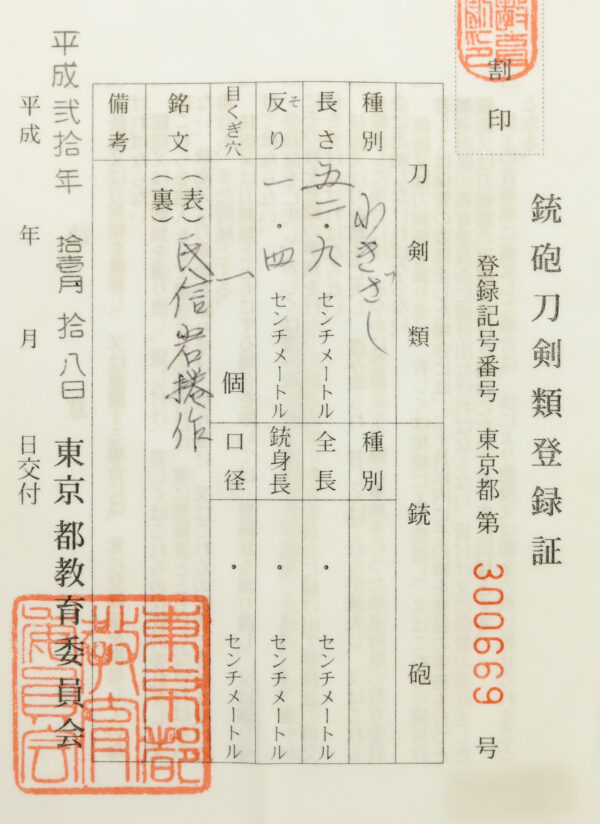 割印
銃砲刀剣類登録証
登録記号番号 東京都 第 300669 号
刀剣類 銃砲
種別 わきざし 種別
長さ 五二・九 センチメートル 全長 ・ センチメートル
反り 一・四 センチメートル 銃身長 ・ センチメートル
そ
目くぎ穴 一個 口径 ・ センチメートル
銘文 (表) 氏信岩捲作
(裏)
備考
平成弐拾年 拾壱月 拾八日
平成 年 月 日交付
東京都教育委員会
東京都
教育
委員会